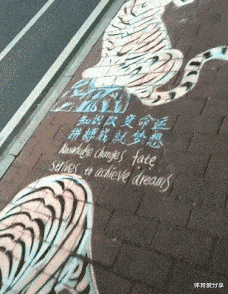 知识改变命运
拼搏成就梦想
knowledge changes fate
strives to achieve dreams
体育家分享